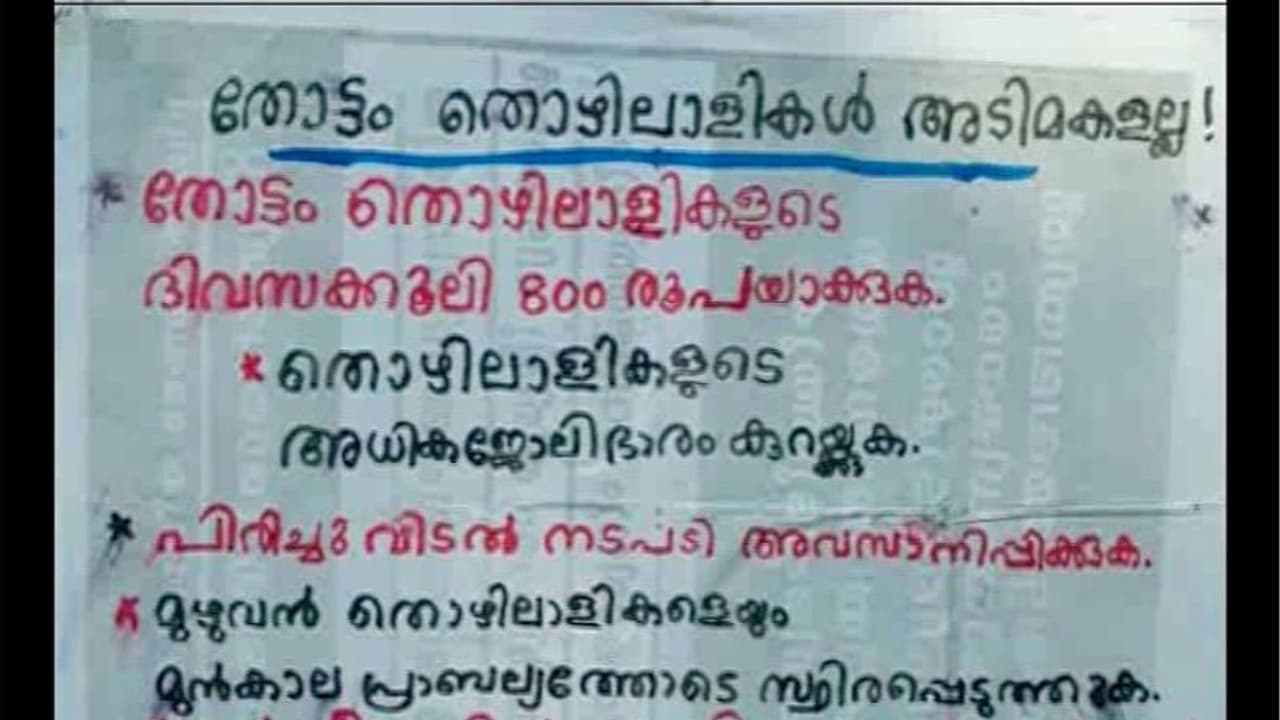 തോട്ടം തൊഴിലാളികൾ അടിമകളല്ല!
* തോട്ടം തൊഴിലാളികളുടെ
ദിവസക്കൂലി 800 രൂപയാക്കുക.
* തൊഴിലാളികളുടെ
അധികജോലിഭാരം കുറയ്ക്കുക.
* പിരിച്ചു വിടൽ നടപടി അവസാനിപ്പിക്കുക.
* മുഴുവൻ തൊഴിലാളികളെയും
മുൻകാല പ്രാബല്യത്തോടെ സ്ഥിരപ്പെടുത്തുക.